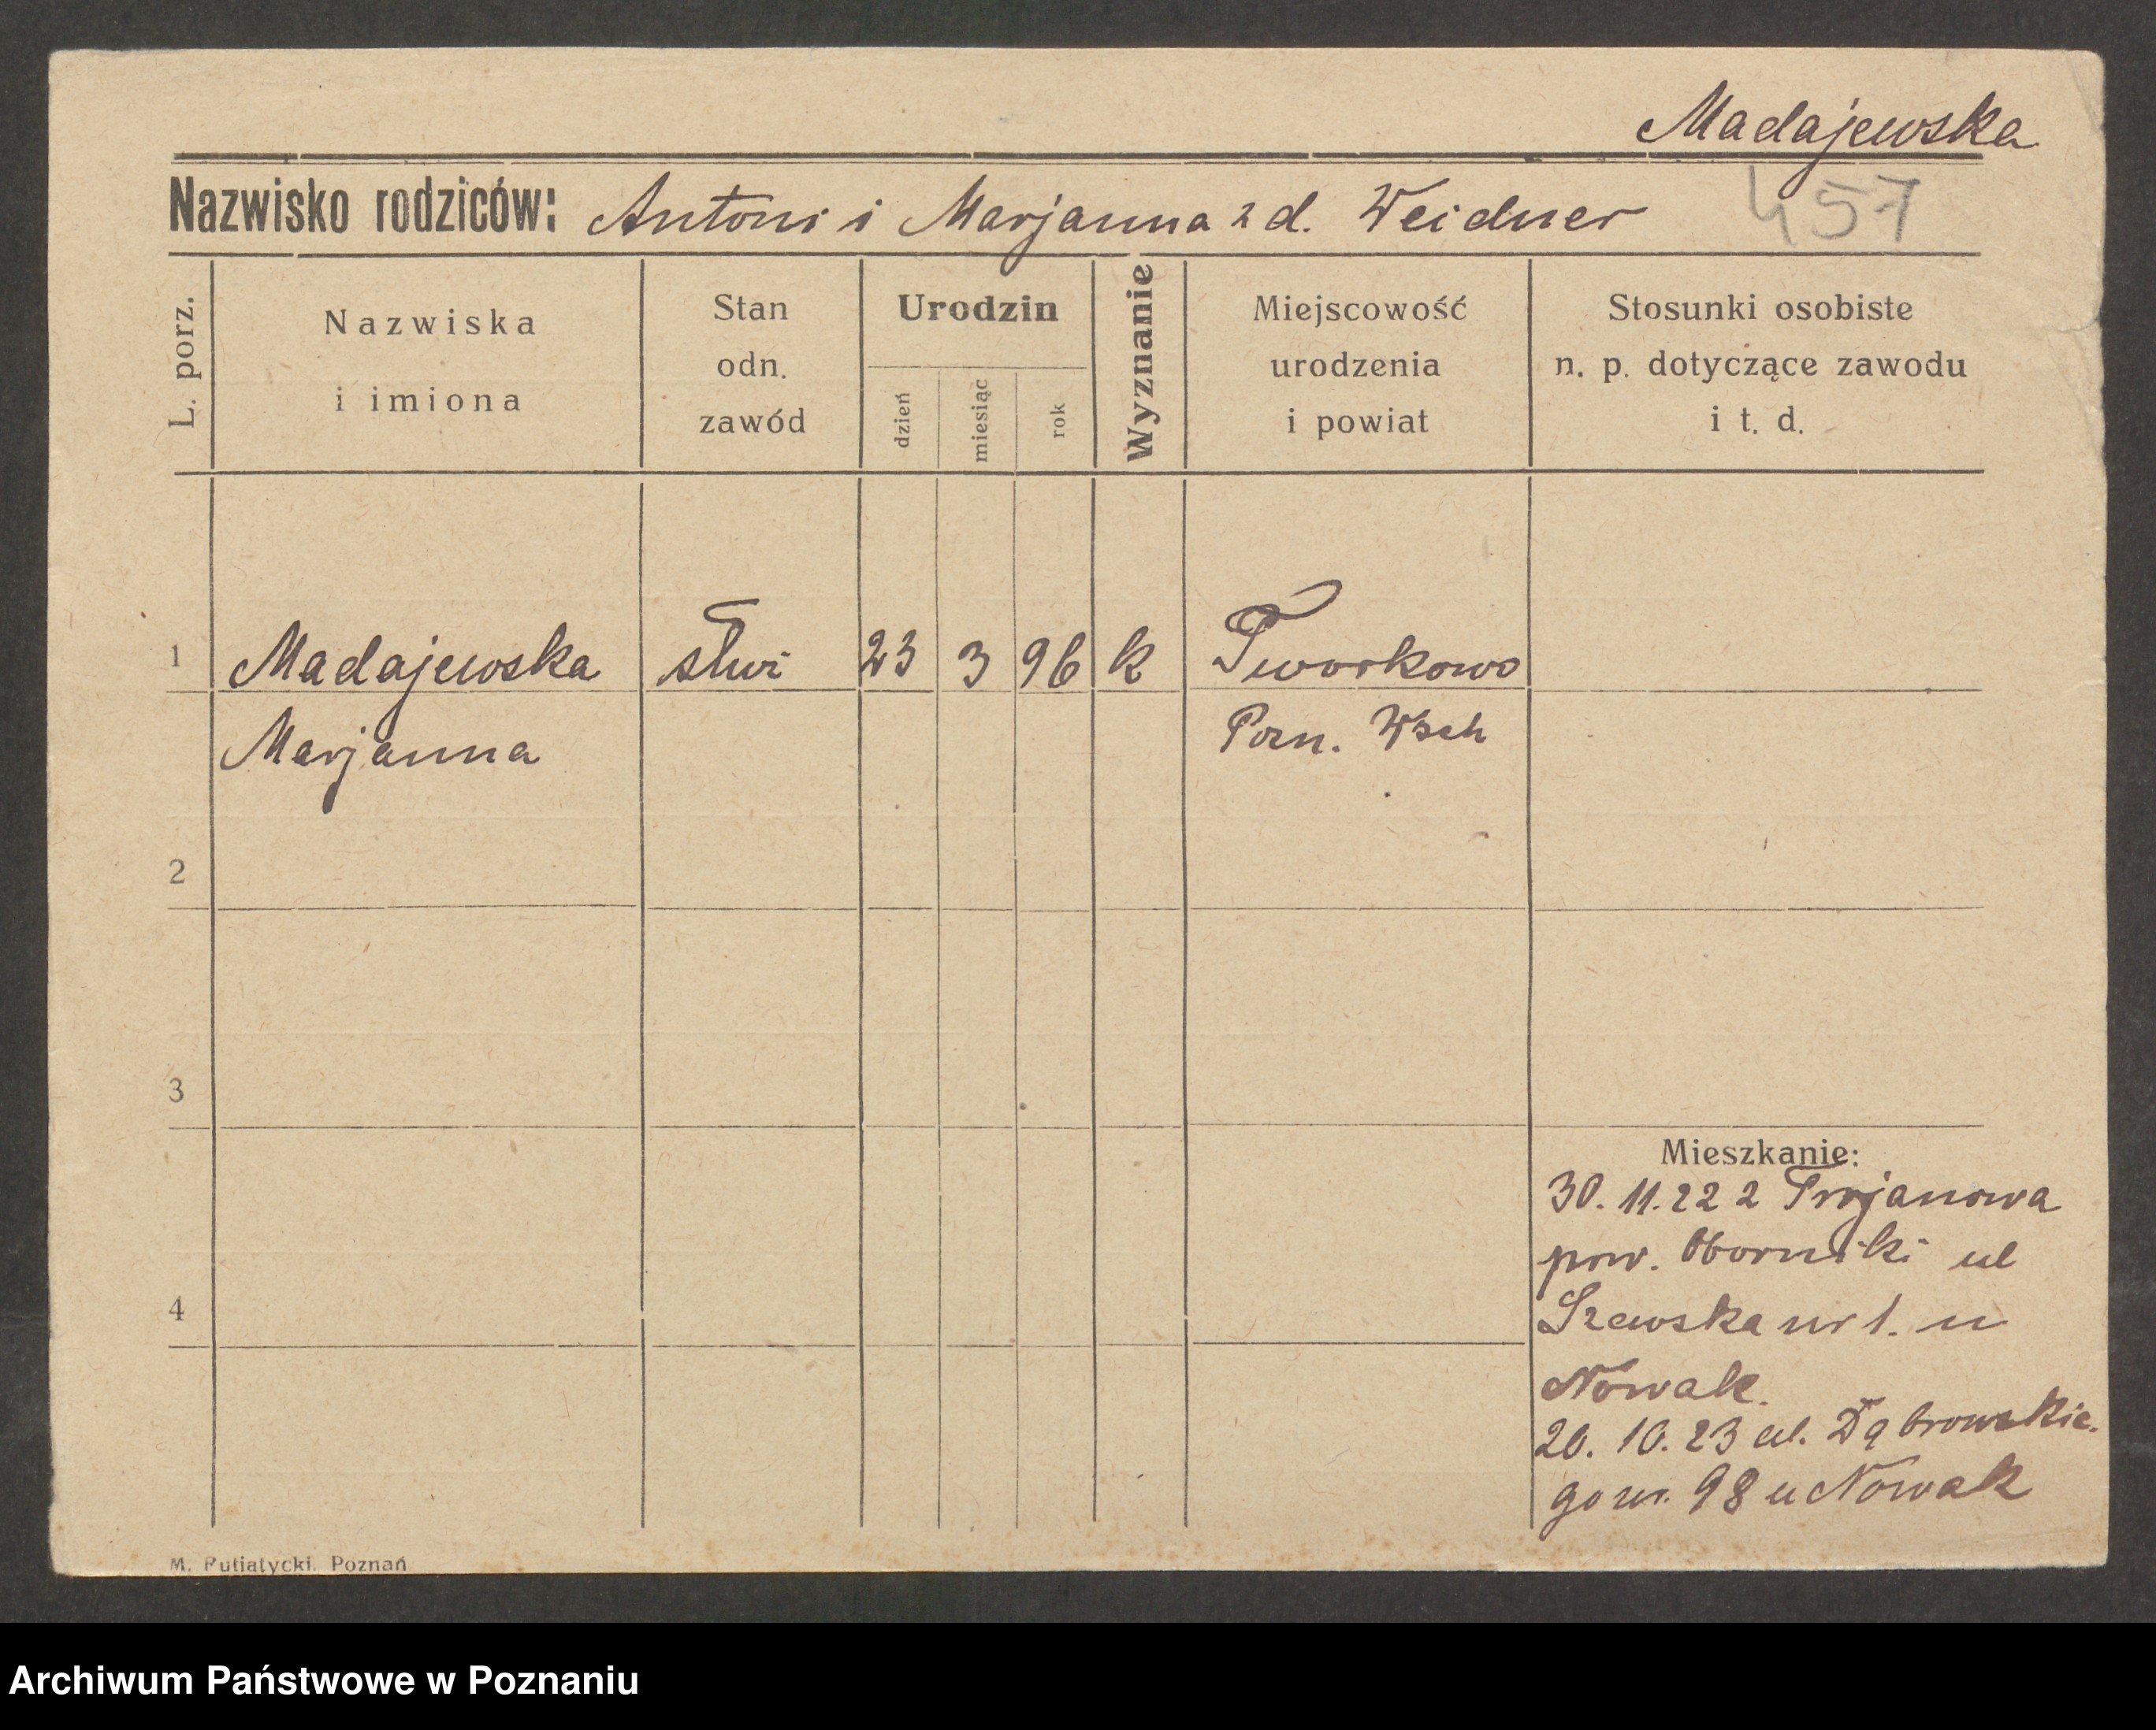 Madajewska
Nazwisko rodziców: Antoni i Marjanna z d. Weidner
457
L. porz.
Nazwiska
i imiona
Stan
odn.
zawód
Urodzin
dzień
miesiąc
rok
Wyznanie
Miejscowość
urodzenia
i powiat
Stosunki osobiste
n. p. dotyczące zawodu
i t. d.
1 Madajewska służ 23 3 96 k Tworkowo
Marjanna Pozn. Wsch
2
3
Mieszkanie:
30. 11. 22 z Trojanowa
pow. Oborniki ul
4
Szewska nr 1. u
Nowak.
20. 10. 23 ul. Dąbrowskie.
go nr. 98 u Nowak
M. Putiatycki. Poznań
Archiwum Państwowe w Poznaniu